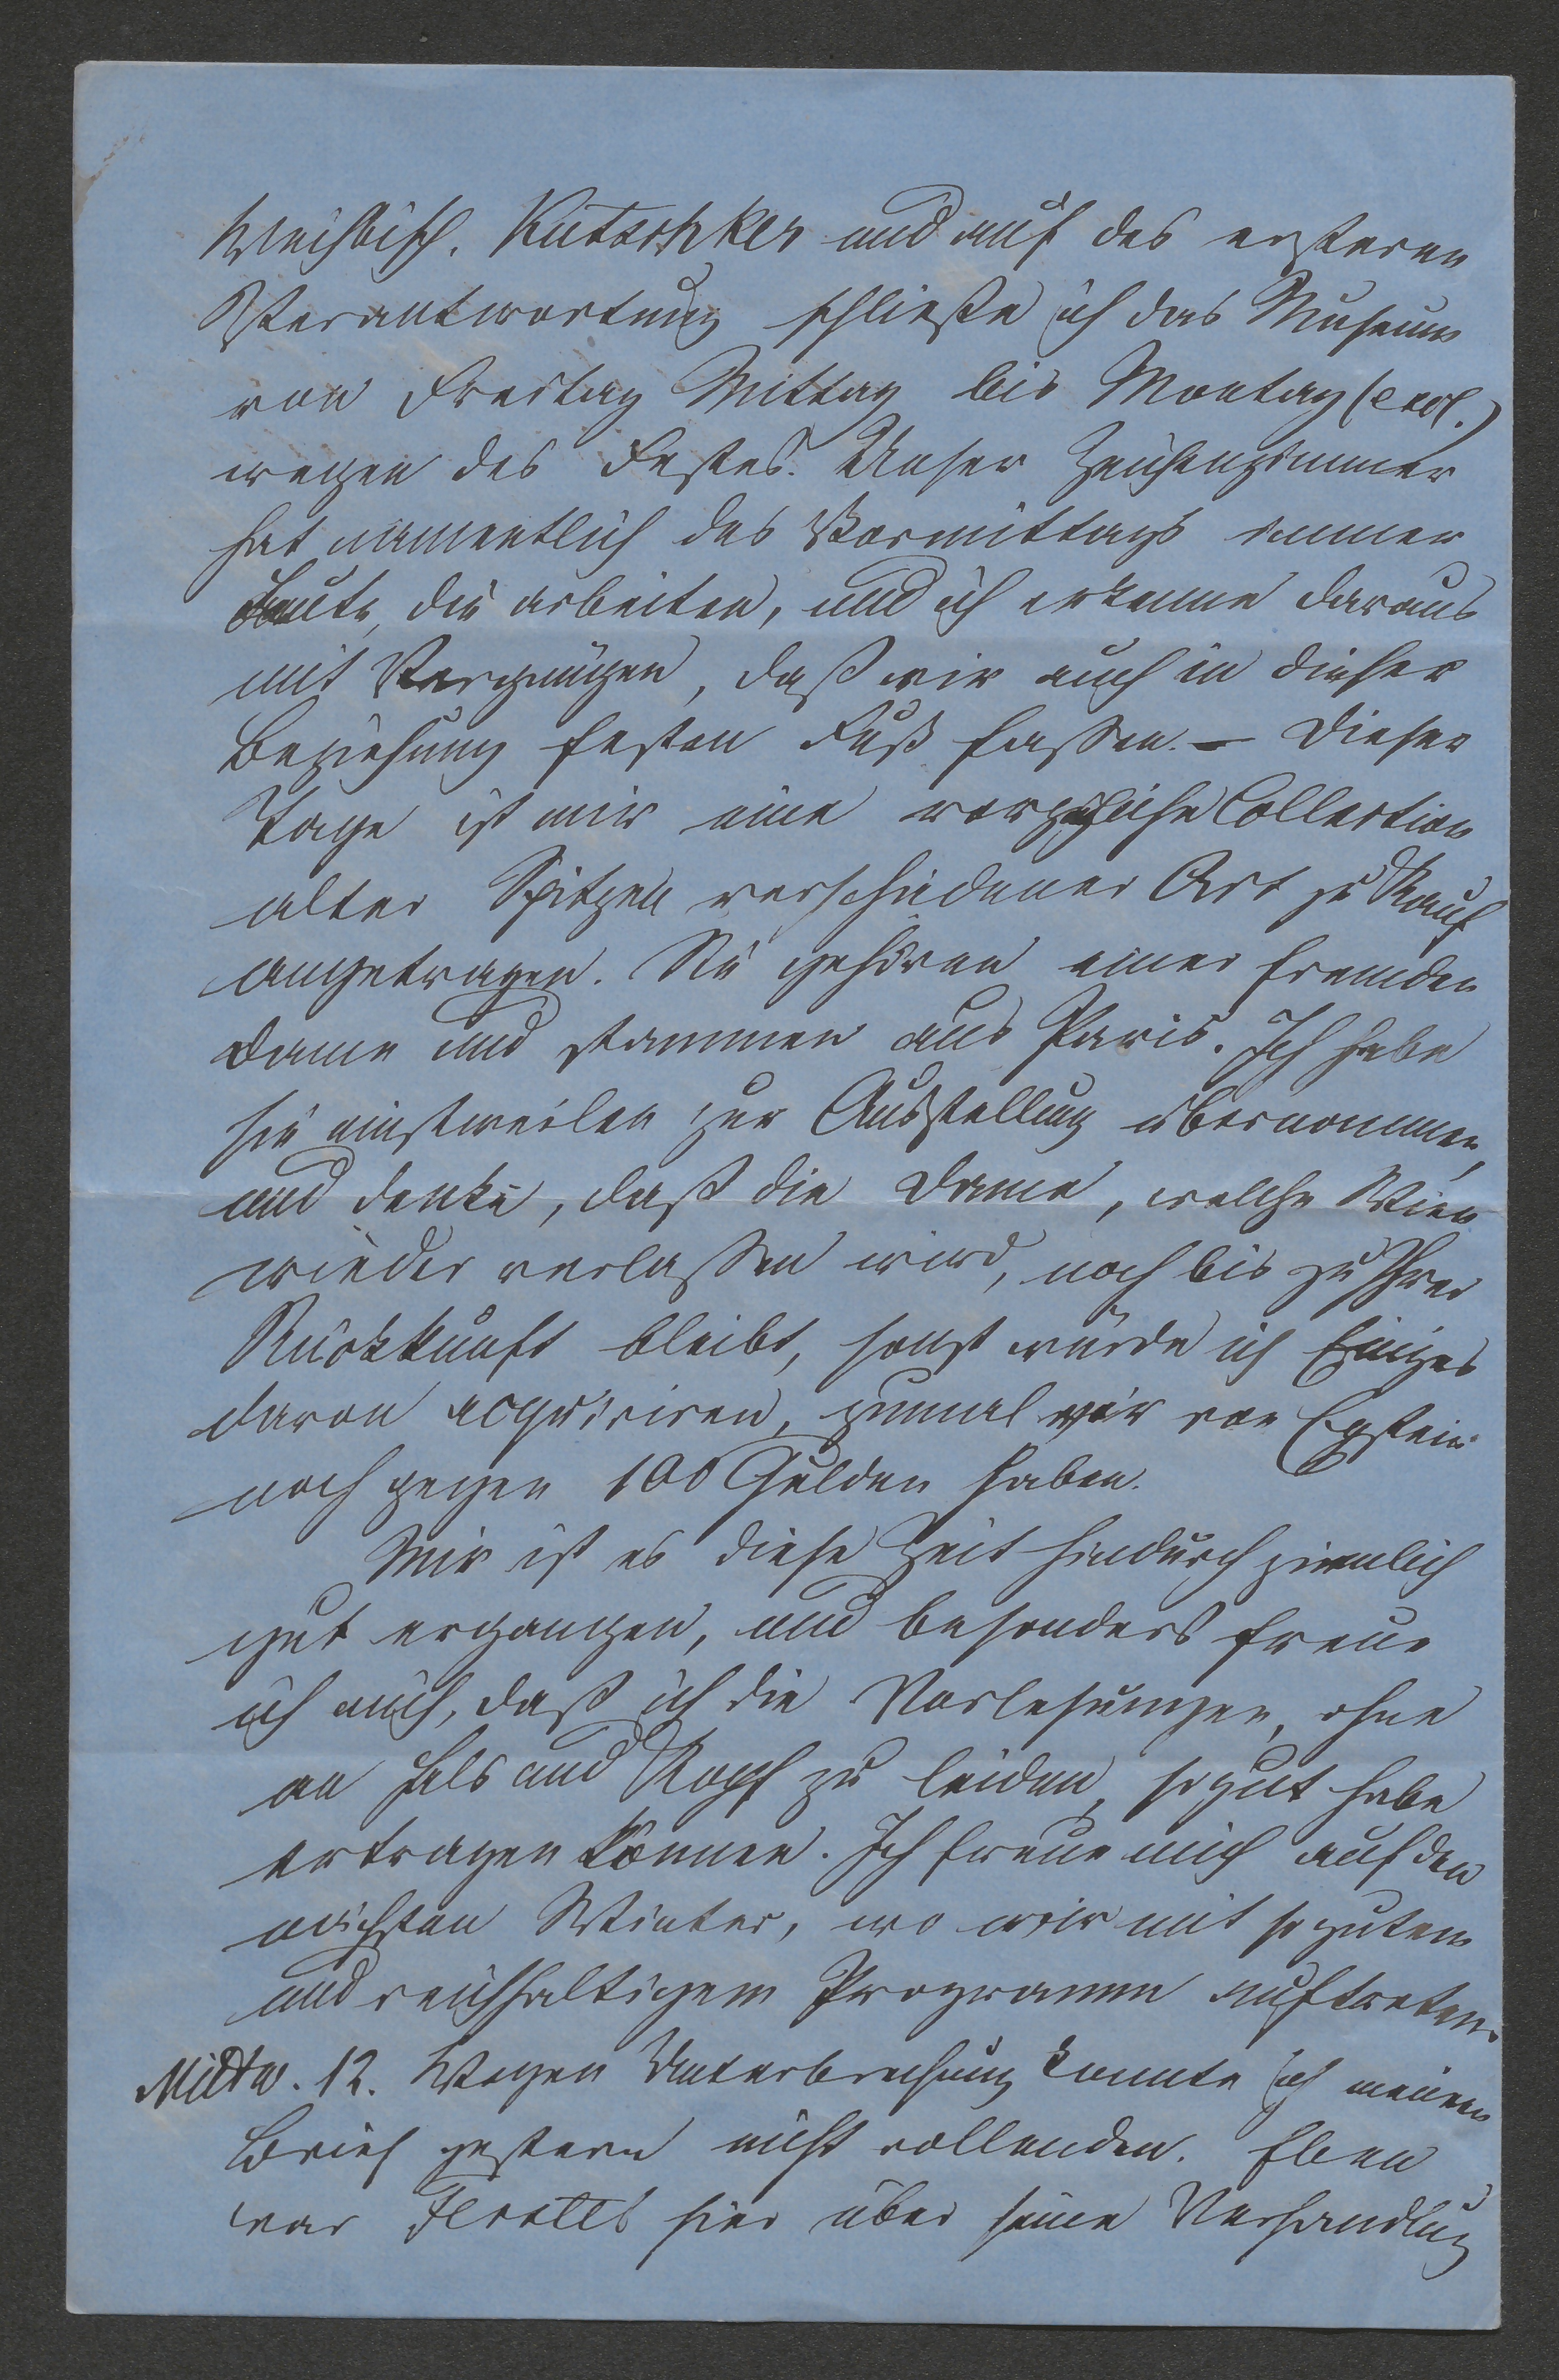 Weihbisch. Kutschker und auf des ersteren
Verantwortung schließe ich das Museum
von Freitag Mittag bis Montag (excl.)
wegen des Festes. Unser Zeichenzimmer
hat namentlich des Vormittags immer
Leute, die arbeiten, und ich erkenne daraus
mit Vergnügen, daß wir auch in dieser
Beziehung festen Fuß fassen. – Dieser
Tage ist mir eine vorzügliche Collection
alter Spitzen verschiedener Art zu Kauf
angetragen. Sie gehören einer fremden
Dame und stammen aus Paris. Ich habe
sie einstweilen zur Ausstellung übernommen,
und denke, daß die Dame, welche Wien
wieder verlassen wird, noch bis zu Ihrer
Rückkunft bleibt, sonst würde ich Einiges
davon acquiriren, zumal wir von Epstein
noch gegen 100 Gulden haben.
Mir ist es diese Zeit hindurch ziemlich
gut ergangen, und besonders freue
ich mich, daß ich die Vorlesungen, ohne
an Hals und Kopf zu leiden, so gut habe
ertragen können. Ich freue mich auf den
nächsten Winter, wo wir mit so gutem
und reichhaltigem Programm auftreten.
Mittw. 12. Wegen Unterbrechung konnte ich meinen
Brief gestern nicht vollenden. Eben
war hier über seine Verhandlung